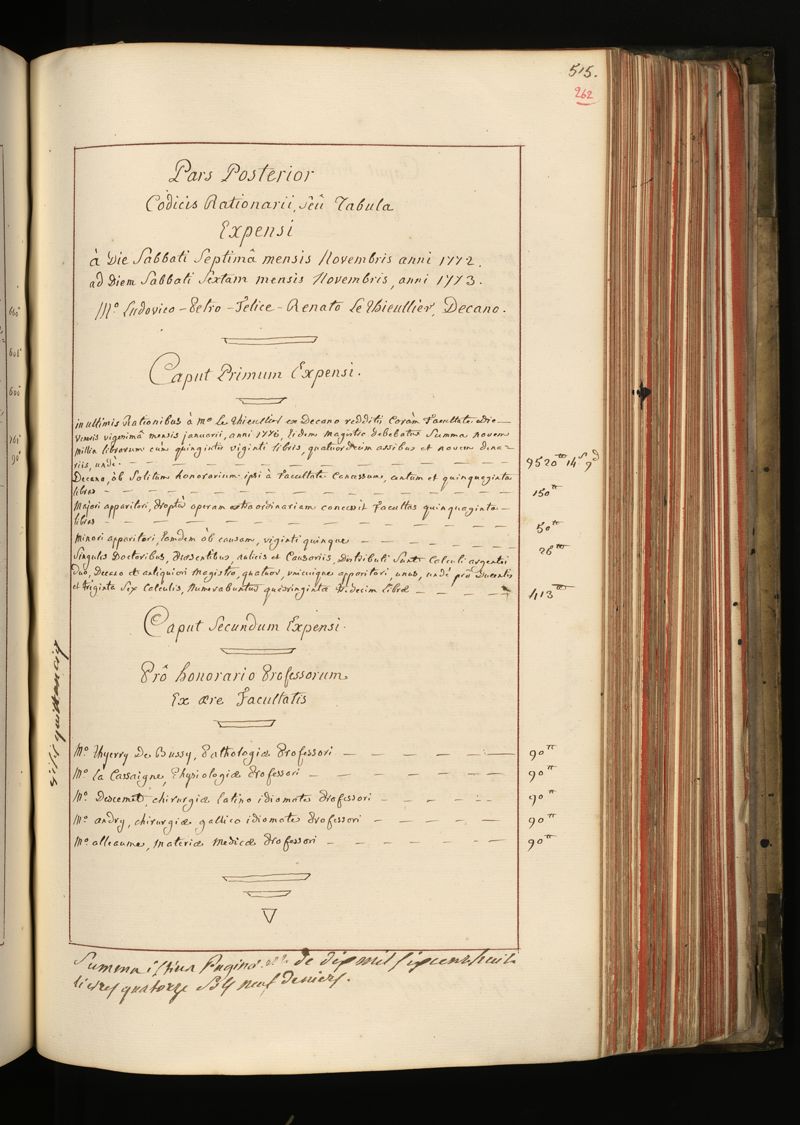 515.
262
Pars Posterior
Codicis Rationarii, seu Tabula
Expensi
à Die Sabbati Septimâ mensis Novembris anni 1772.
ad Diem Sabbati Sextam mensis Novembris, anni 1773.
M.o Ludovico - Petro - Felice - Renato Le Thieullier, Decano.
Caput Primum Expensi.
in ultimis Rationibus à M.o Le Thieullier ex Decano redditis Coràm Facultate die
Veneris vigesimâ mensis januarii, anni 1776, Eidem Magistro debebatur Summa novem
millia librarum cùm quingintis viginti libris, quatuordecim assibus et novem dena-
riis, undè. 9520tt 14s 9d
Decano, òb Solitum honorarium ipsi à Facultate Concessum, centum et quinquaginta
libras 150tt
Majori apparitori, Propter operam extraordinariam concessit Facultas quinquaginta
libras 50tt
Minori apparitori, Eamdem òb causam, viginti quinque 26tt
Singulis Doctoribus, Praesentibus, aulicis et Causariis, Distributi Sunt Calculi argentei
duo, Decano et antiquiori Magistro, quatuor, unicuique apparitori, unus, undè prò Ducentis
et triginta Sex Calculis, Numerabuntur quadringintae tredecim librae 413tt
Caput Secundum Expensi.
Prô honorario Professorum
Ex aere Facultatis
M.o Thyerry De Bussy, Pathologiae Professori 90tt
M.o la Cassaigne, Physiologiae Professori 90tt
M.o Descemet, chirurgiae latino idiomate Professori 90tt
M.o andry, chirurgiae gallico idiomate Professori 90tt
M.o alleaume, Materiae Medicae Professori 90tt
Summa istius Paginae est de dix mil six cent huit
livres quatorze Sols neuf deniers.